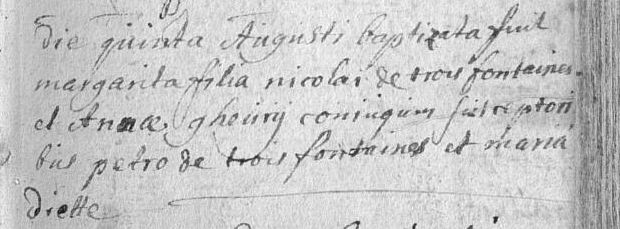 die quinta Augusti baptizata fuit
margarita filia nicolai de trois fontaines
et Annæ ghouy coniugum susceptori
bus petro de trois fontaines et maria
diette